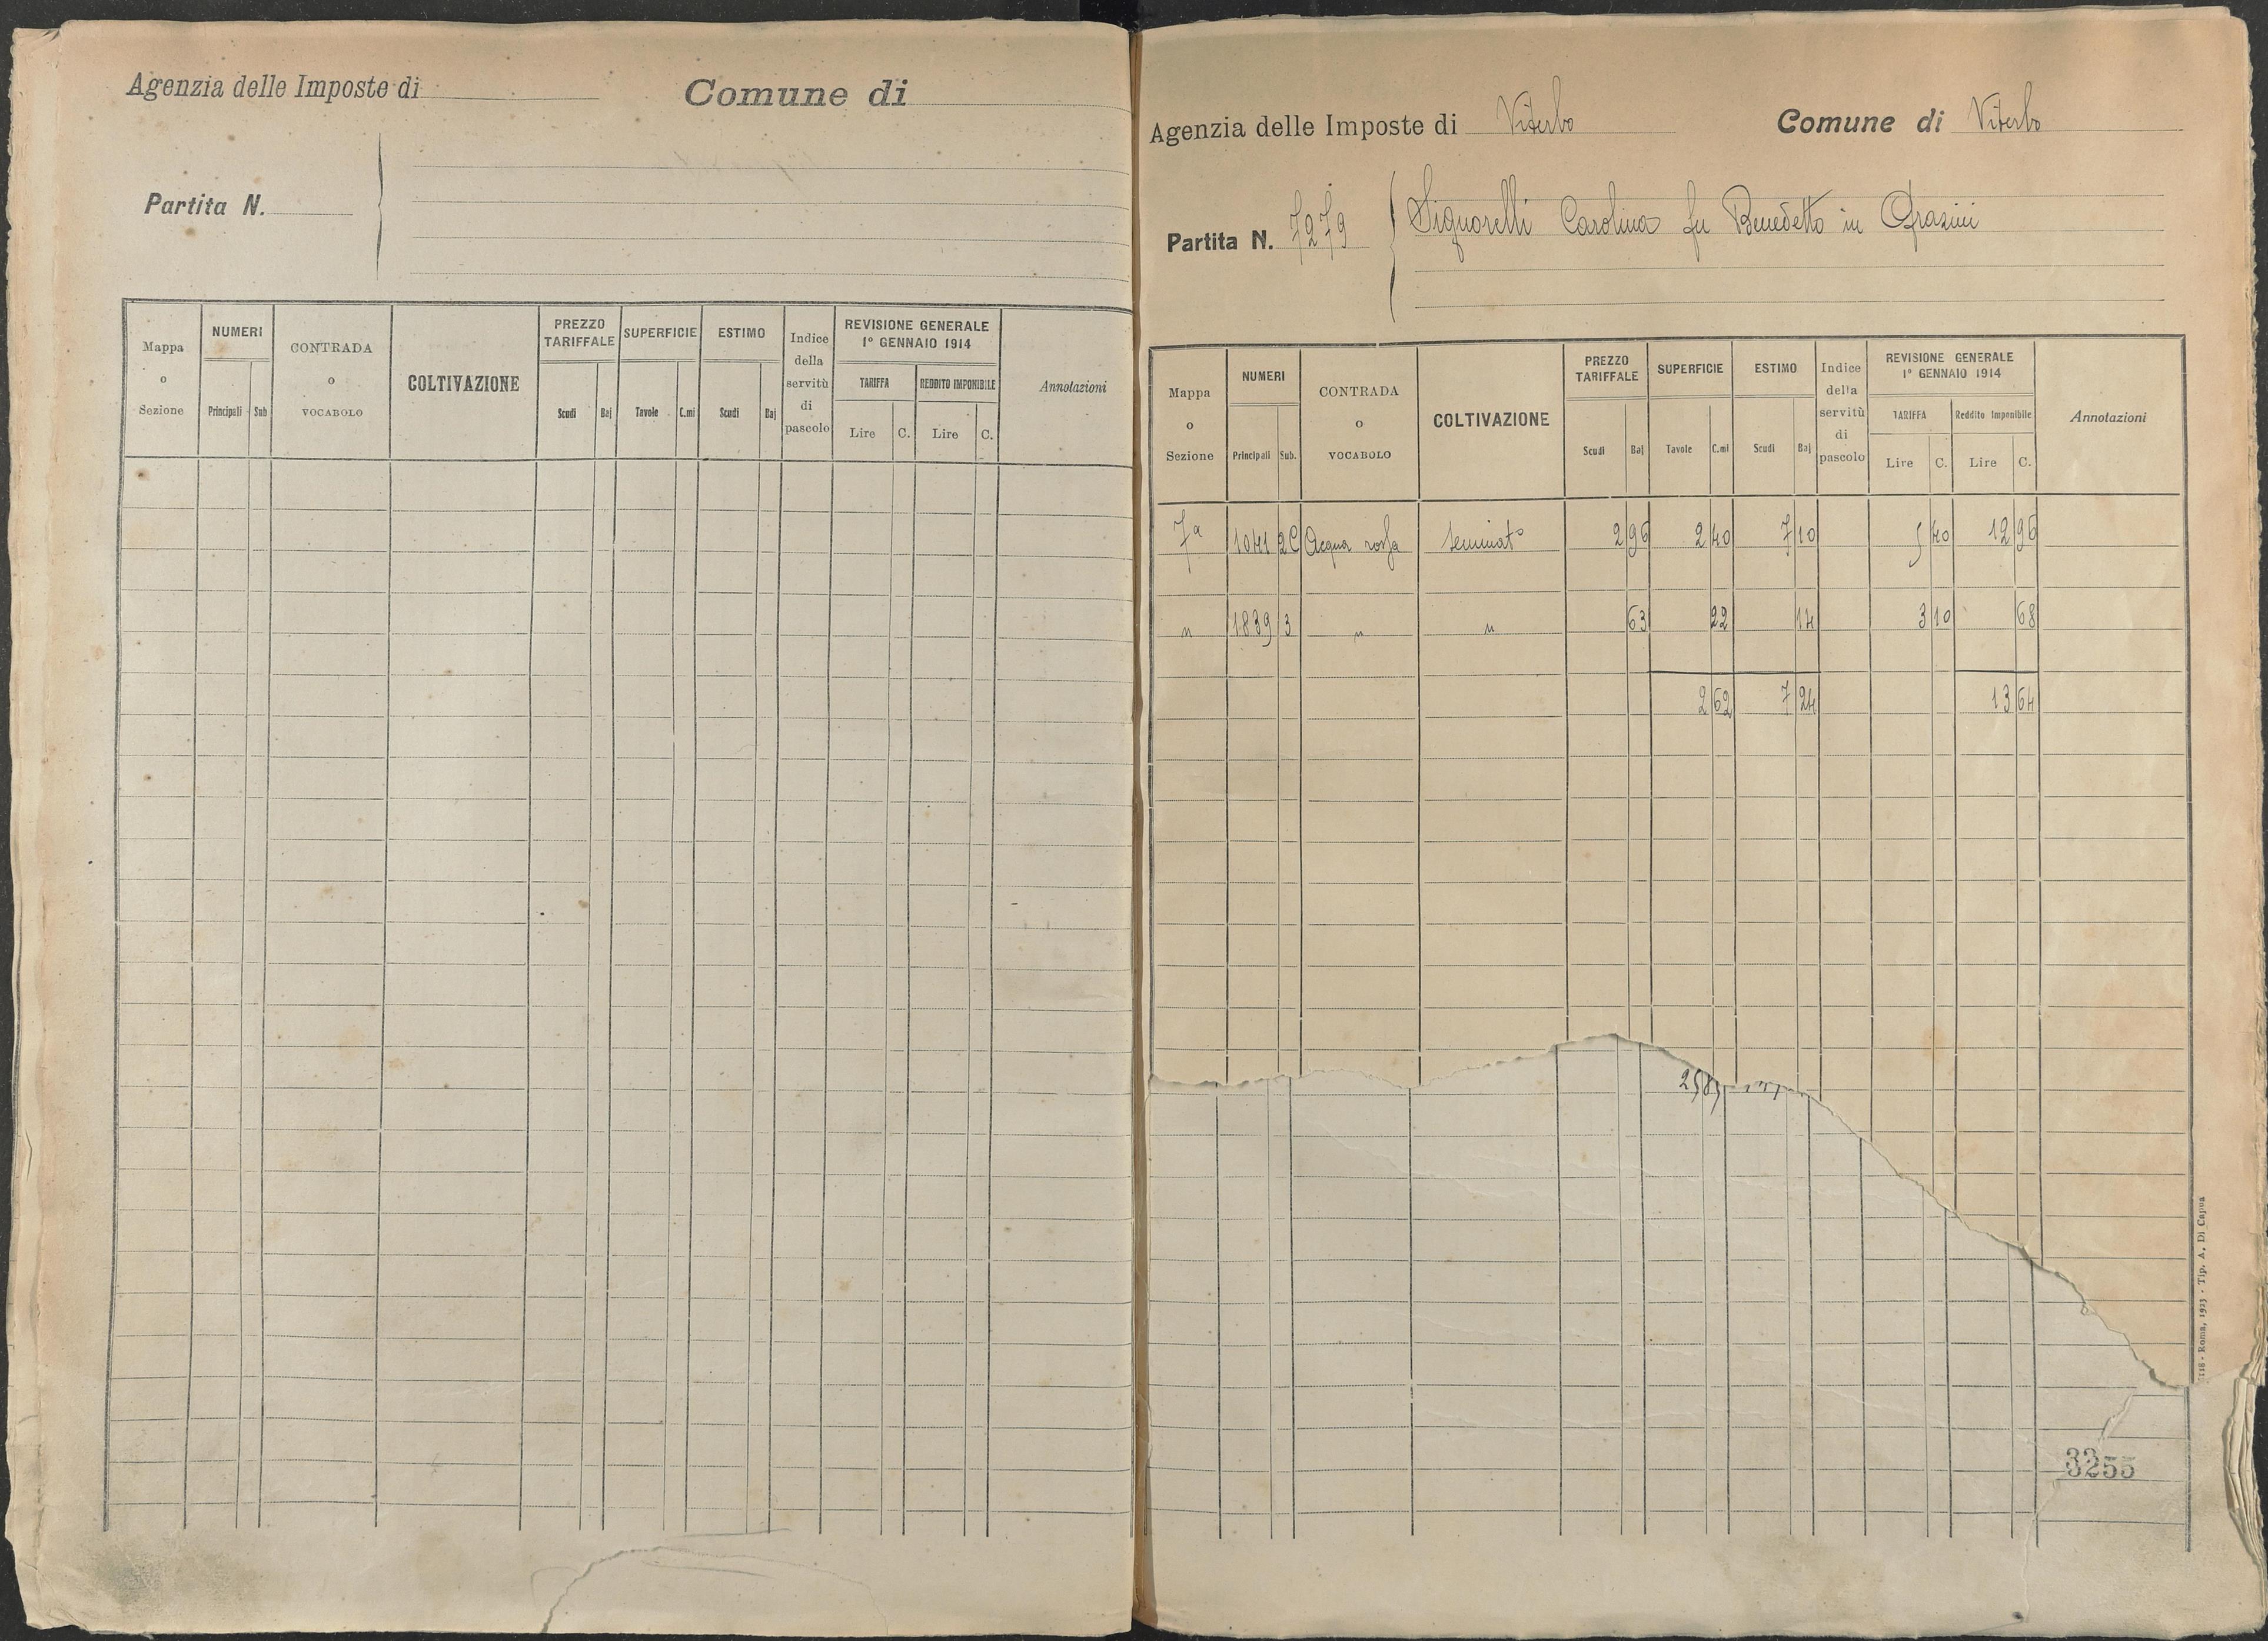 Agenzia delle Imposte di
Comune di
Partita N.
Mappa o Sezione
NUMERI
Principali Sub
CONTRADA o VOCABOLO
COLTIVAZIONE
PREZZO TARIFFALE
Scudi Baj
SUPERFICIE
Tavole C.mi
ESTIMO
Scudi Baj
Indice della servitù di pascolo
REVISIONE GENERALE
1° GENNAIO 1914
TARIFFA REDDITO IMPONIBILE
Lire C. Lire C.
Annotazioni
Agenzia delle Imposte di Viterbo
Comune di Viterbo
Partita N. 7279
Signorelli Carolina fu Benedetto in Grazini
Mappa o Sezione
NUMERI
Principali Sub.
CONTRADA o VOCABOLO
COLTIVAZIONE
PREZZO TARIFFALE
Scudi Baj
SUPERFICIE
Tavole C.mi
ESTIMO
Scudi Baj
Indice della servitù di pascolo
REVISIONE GENERALE
1° GENNAIO 1914
TARIFFA Reddito Imponibile
Lire C. Lire C.
Annotazioni
7ª 1041 2C Acqua rossa seminatº 2 96 2 40 7 10 5 40 12 96
" 1839 3 " " 63 22 14 3 10 68
2 62 7 24 13 64
3255
Roma, 1923 - Tip. A. Di Capua